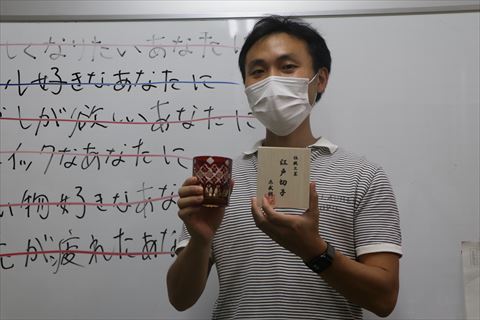 しくなりたいあなたに
ル好きなあなたに
しが欲しいあなたに
ックなあなたに
い物好きなあなたに
が疲れたあな
伝統工芸
江戸切子